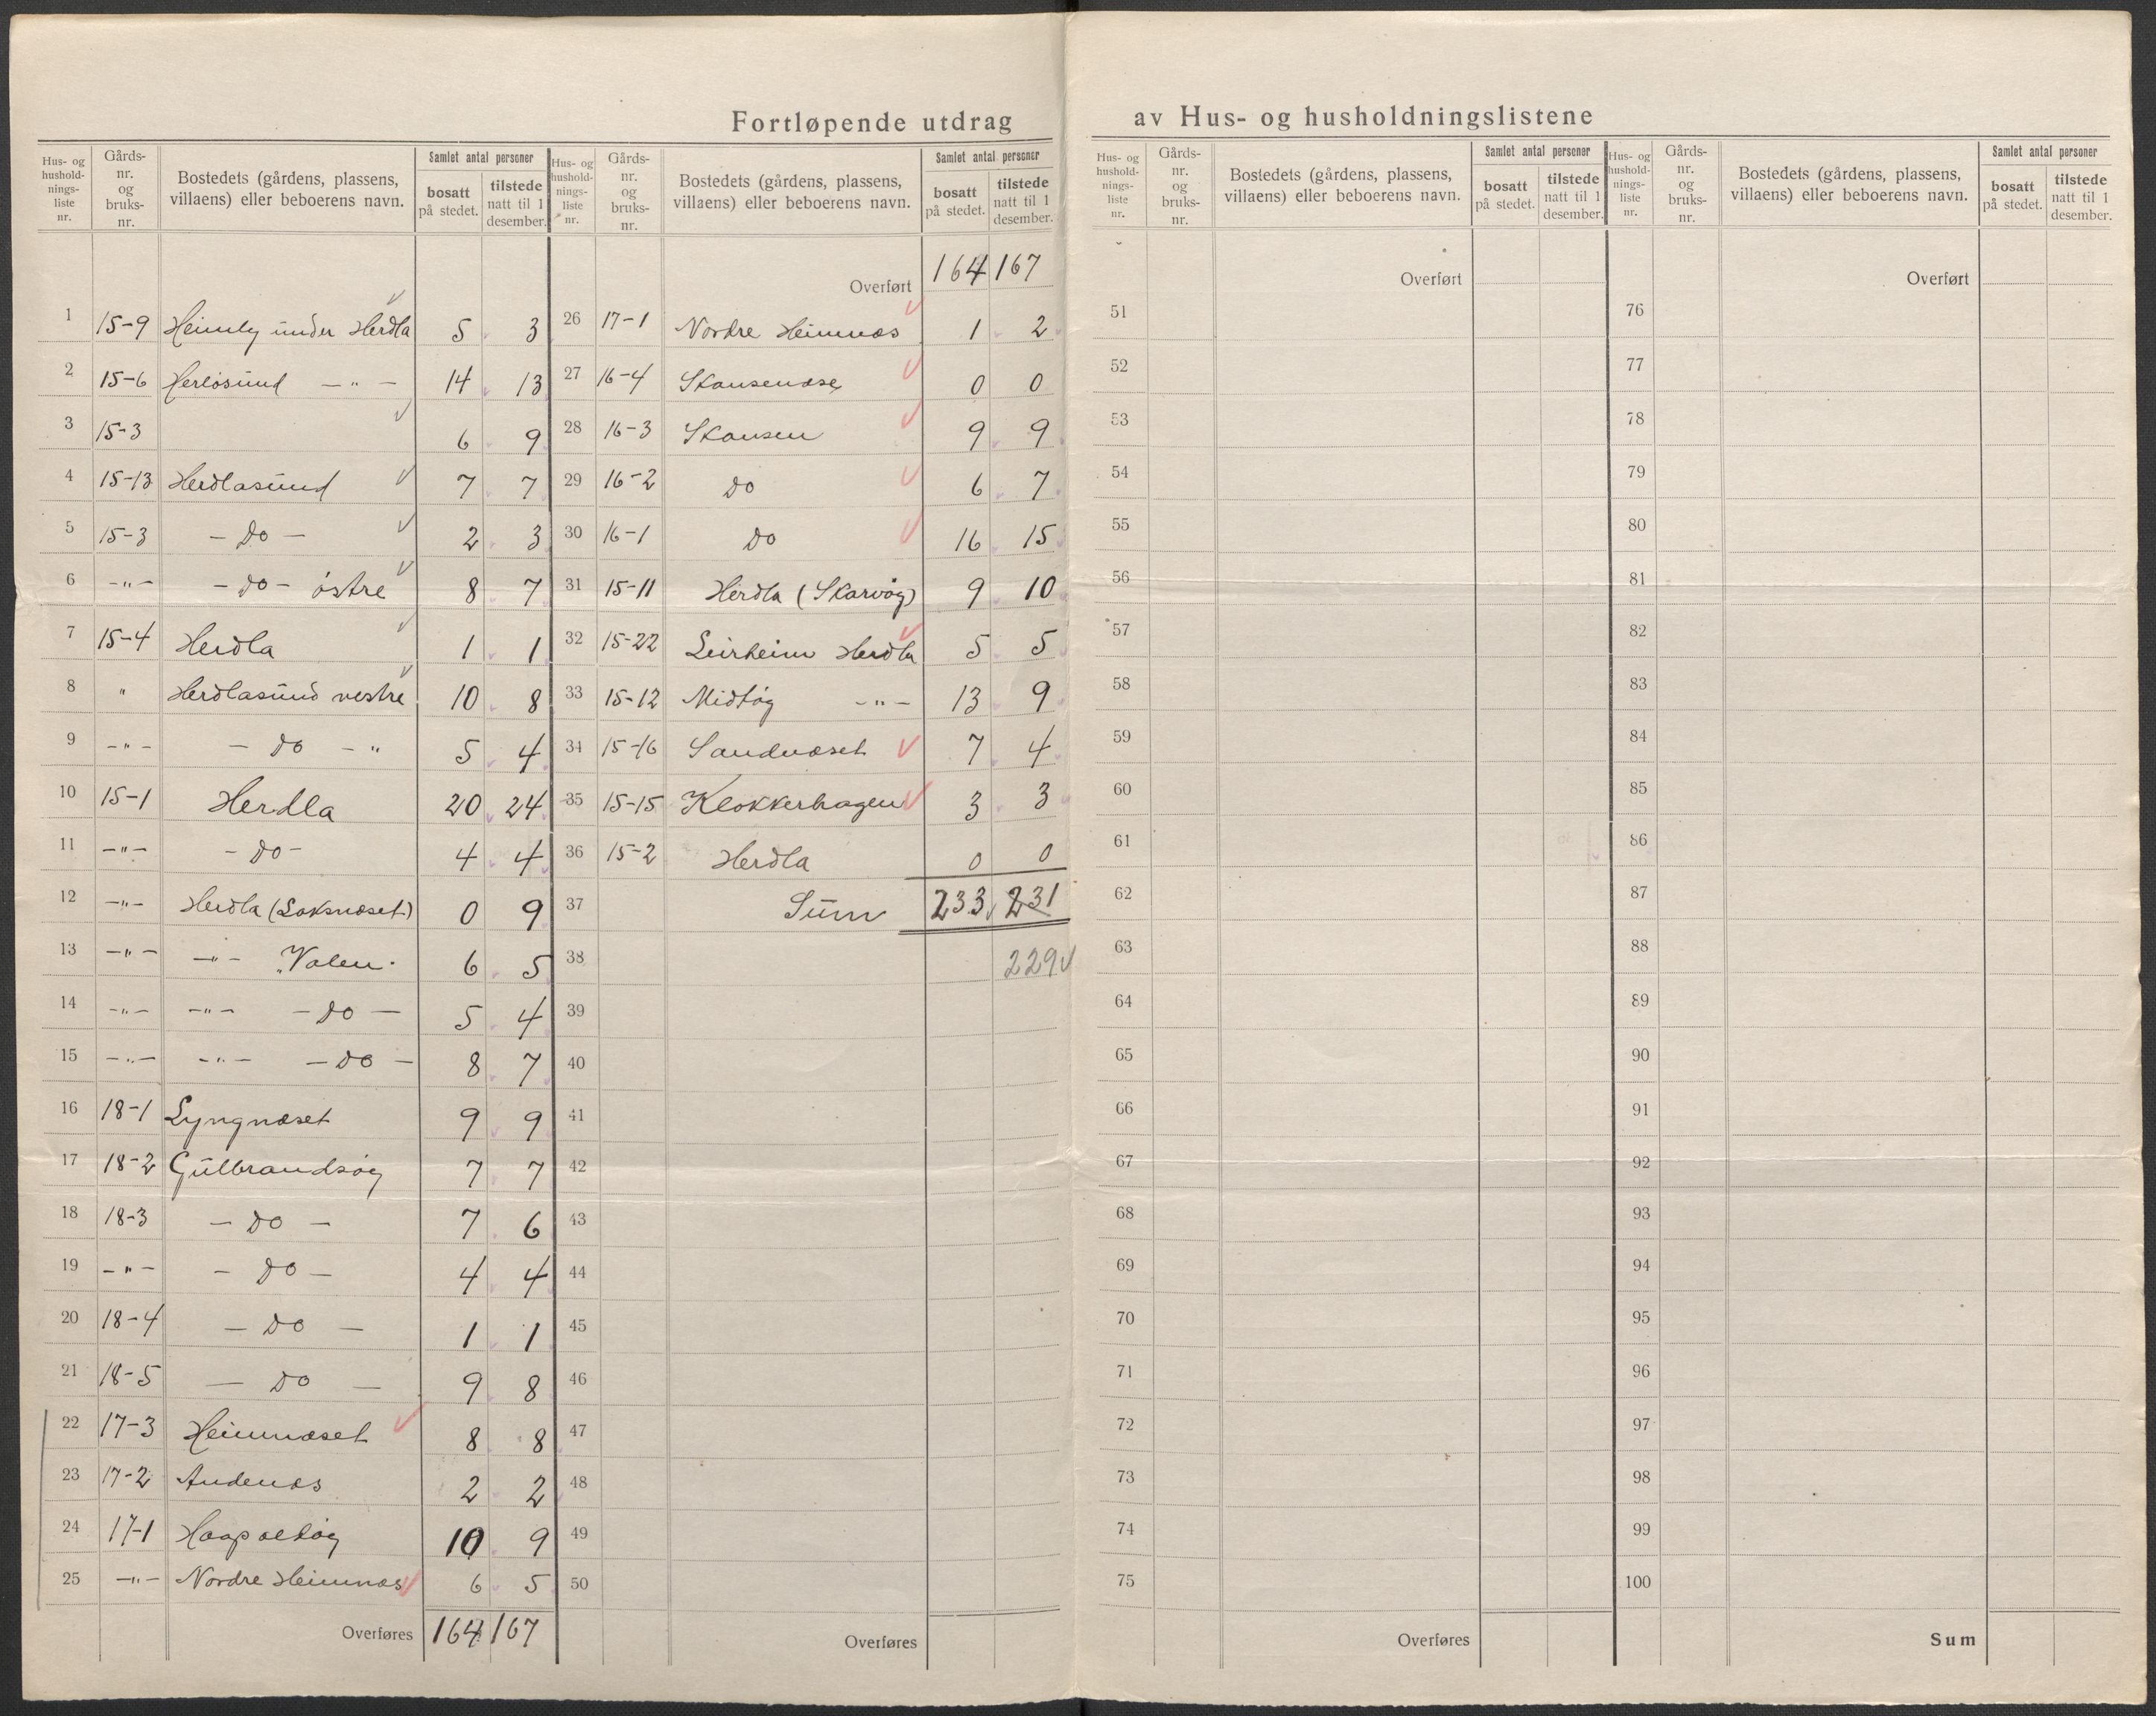 Fortløpende utdrag av Hus- og husholdningslistene
Hus- og husholdnings-liste nr. | Gårds-nr. og bruks-nr. | Bostedets (gårdens, plassens, villaens) eller beboerens navn. | Samlet antal personer | bosatt på stedet. | tilstede natt til 1 desember.
1 15-9 Heimly under Herdla 5 3
2 15-6 Herlösund — " — 14 13
3 15-3 6 9
4 15-13 Herdlasund 7 7
5 15-3 - Do - 2 3
6 -"- - do - östre 8 7
7 15-4 Herdla 1 1
8 " Herdlasund vestre 10 8
9 -"- - do - " 5 4
10 15-1 Herdla 20 24
11 -"- - do - 4 4
12 -"- Herdla (Laksnæset) 0 9
13 -"- -"- "Valen" 6 5
14 -"- -"- - do - 5 4
15 -"- -"- - do - 8 7
16 18-1 Lyngnæset 9 9
17 18-2 Gulbrandsøy 7 7
18 18-3 - Do - 7 6
19 -"- - Do - 4 4
20 18-4 - Do - 1 1
21 18-5 - Do - 9 8
22 17-3 Heimnæset 8 8
23 17-2 Andenæs 2 2
24 17-1 10 9
25 -"- Nordre Heimnæs 6 5
Overføres 164 167
Hus- og husholdnings-liste nr. | Gårds-nr. og bruks-nr. | Bostedets (gårdens, plassens, villaens) eller beboerens navn. | Samlet antal personer | bosatt på stedet. | tilstede natt til 1 desember.
Overført 164 167
26 17-1 Nordre Heimnæs 1 2
27 16-4 0 0
28 16-3 Skansen 9 9
29 16-2 Do 6 7
30 16-1 Do 16 15
31 15-11 Herdla (Skarvøy) 9 10
32 15-22 Leirheim Herdla 5 5
33 15-12 Midtøy -"- 13 9
34 15-16 Sandnæset 7 4
35 15-15 Klokkerhagen 3 3
36 15-2 Herdla 0 0
37 Sum 233 231
38 229
39
40
41
42
43
44
45
46
47
48
49
50
Overføres
Hus- og husholdnings-liste nr. | Gårds-nr. og bruks-nr. | Bostedets (gårdens, plassens, villaens) eller beboerens navn. | Samlet antal personer | bosatt på stedet. | tilstede natt til 1 desember.
Overført
51
52
53
54
55
56
57
58
59
60
61
62
63
64
65
66
67
68
69
70
71
72
73
74
75
Overføres
Hus- og husholdnings-liste nr. | Gårds-nr. og bruks-nr. | Bostedets (gårdens, plassens, villaens) eller beboerens navn. | Samlet antal personer | bosatt på stedet. | tilstede natt til 1 desember.
Overført
76
77
78
79
80
81
82
83
84
85
86
87
88
89
90
91
92
93
94
95
96
97
98
99
100
Sum